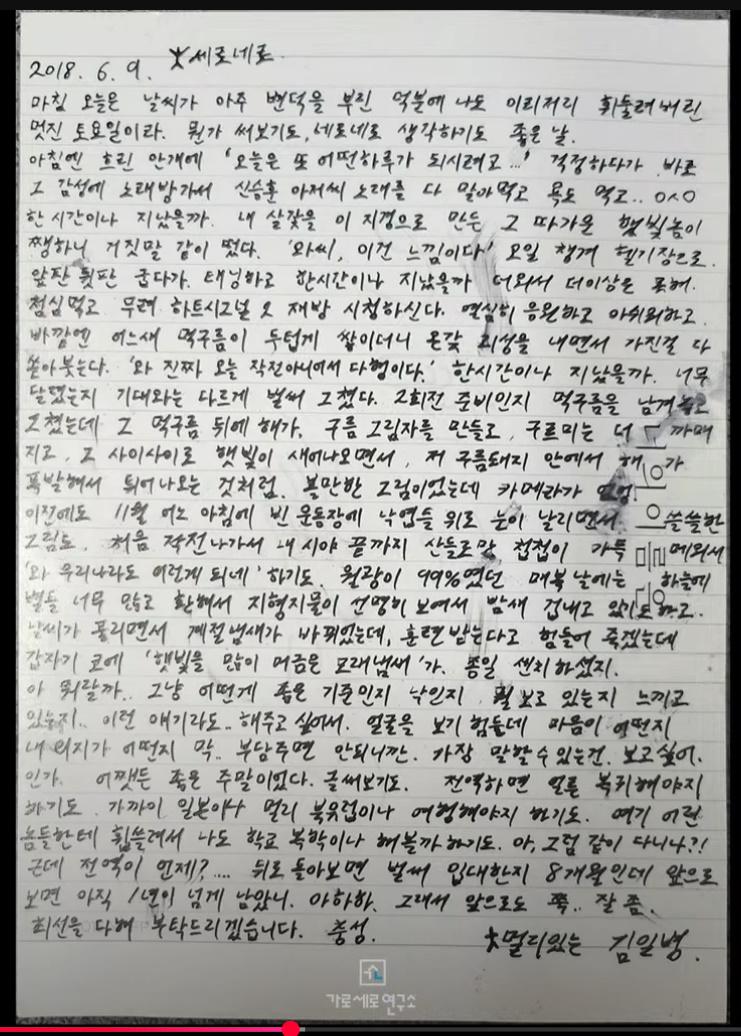 2018. 6. 9. 세로네로.
마침 오늘은 날씨가 아주 변덕을 부린 덕분에 나도 이리저리 휘둘려버린
멋진 토요일이라. 뭔가 써보기도, 네로네로 생각하기도 좋은 날.
아침엔 흐린 안개에 '오늘은 또 어떤하루가 되시려고...' 걱정하다가 바로
그 감성에 노래방가서 신승훈 아저씨 노래를 다 말아먹고 욕도 먹고.. 0^0
한 시간이나 지났을까. 내 살갗을 이 지경으로 만든 그 따가운 햇빛놈이
쨍하니 거짓말 같이 떴다. '와씨, 이건 느낌이다!' 오일 챙겨 헬기장으로.
앞판 뒷판 굽다가. 태닝하고 한시간이나 지났을까 더워서 더이상은 못해.
점심먹고 무려 하트시그널 2 재방 시청하신다. 열심히 응원하고 아쉬워하고.
바깥엔 어느새 먹구름이 두텁게 쌓이더니 온갖 괴성을 내면서 가진걸 다
쏟아붓는다. '와 진짜 오늘 작전아니어서 다행이다.' 한시간이나 지났을까. 너무
달렸는지 기대와는 다르게 벌써 그쳤다. 2회전 준비인지 먹구름을 남겨놓고
그쳤는데 그 먹구름 뒤에 해가, 구름 그림자를 만들고, 구르미는 더 까매
지고, 그 사이사이로 햇빛이 새어나오면서, 저 구름돼지 안에서 해가
폭발해서 튀어나오는 것처럼. 볼만한 그림이었는데 카메라가
이전에도 11월 어느 아침에 빈 운동장에 낙엽들 위로 눈이 날리면서 쓸쓸한
그림도, 처음 작전나가서 내 시야 끝까지 산들로만 첩첩이 가득 메워서
'와 우리나라도 이렇게 되네' 하기도. 월광이 99%였던 매복 날에는 하늘에
별들 너무 많고 환해서 지형지물이 선명히 보여서 밤새 겁내고 있기도하고.
날씨가 풀리면서 계절냄새가 바뀌었는데, 훈련받는다고 힘들어 죽겠는데
갑자기 코에 '햇빛을 많이 머금은 모래냄새'가. 종일 센치하셨지.
아 뭐랄까.. 그냥 어떤게 좋은 기준인지 낙인지 뭘 보고 있는지 느끼고
있는지.. 이런 얘기라도.. 해주고 싶어서. 얼굴을 보기 힘든데 마음이 어떤지
내 의지가 어떤지 막.. 부담주면 안되니깐. 가장 말할수있는건. 보고싶어.
인가. 어쨋든 좋은 주말이었다. 글써보기도. 전역하면 얼른 복귀해야지
하기도. 가까이 일본이나 멀리 북유럽이나 여행해야지 하기도. 여기 어린
놈들한테 휩쓸려서 나도 학교 복학이나 해볼까하기도. 아, 그럼 같이 다니나?!
근데 전역이 언제?.... 뒤로 돌아보면 벌써 입대한지 8개월인데 앞으로
보면 아직 1년이 넘게 남았니. 아하하. 그래서 앞으로도 쭉.. 잘 좀.
최선을 다해 부탁드리겠습니다. 충성.
멀리있는 김일병.
가로세로연구소